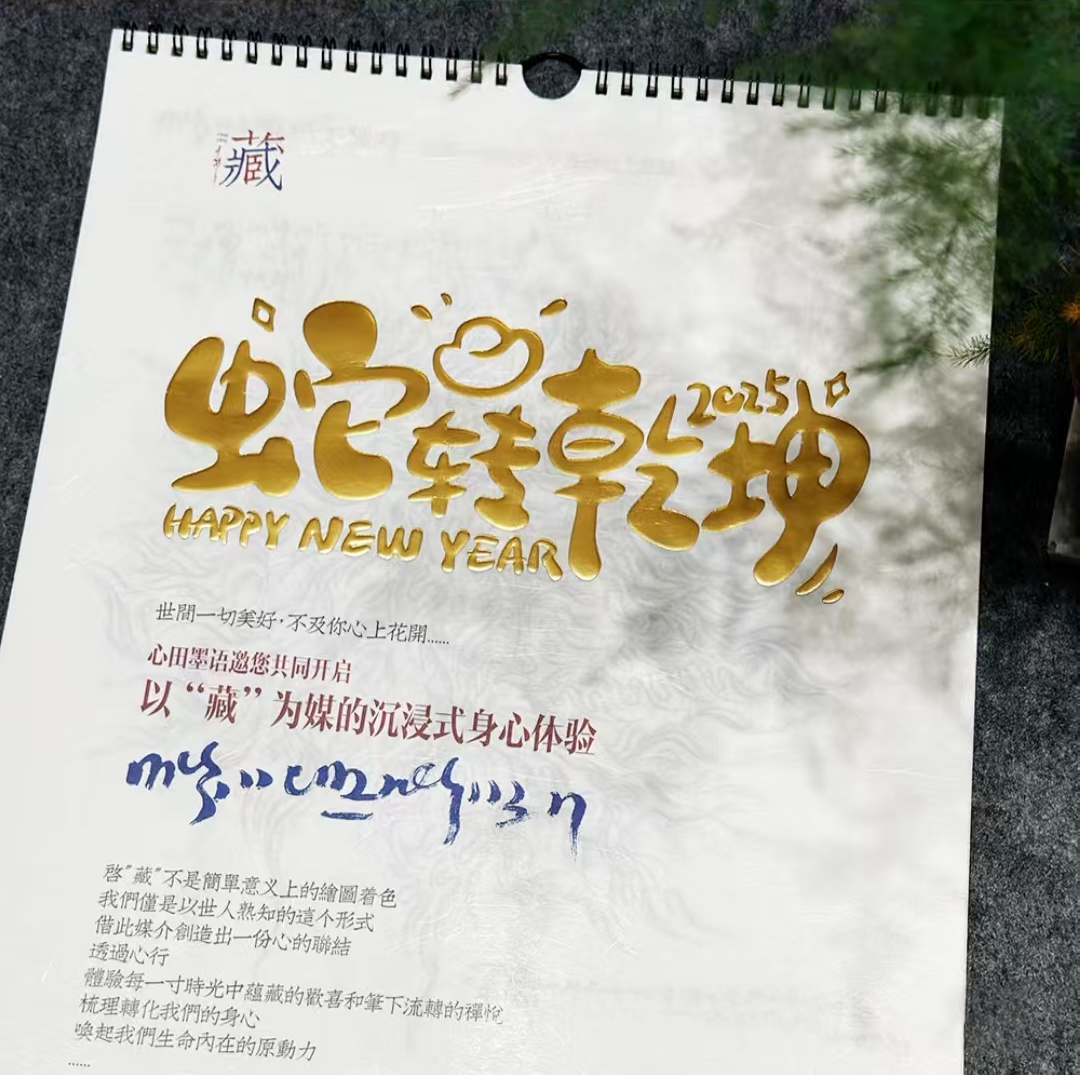 藏
蛇转乾坤
2025
HAPPY NEW YEAR
世間一切美好·不及你心上花開......
心田墨语邀您共同开启
以“藏”为媒的沉浸式身心体验
啓"藏"不是簡單意义上的繪圖着色
我們僅是以世人熟知的這个形式
借此媒介創造出一份心的聯結
透過心行
體驗每一寸時光中蘊藏的歡喜和筆下流轉的禪悅
梳理轉化我們的身心
喚起我們生命內在的原動力
......